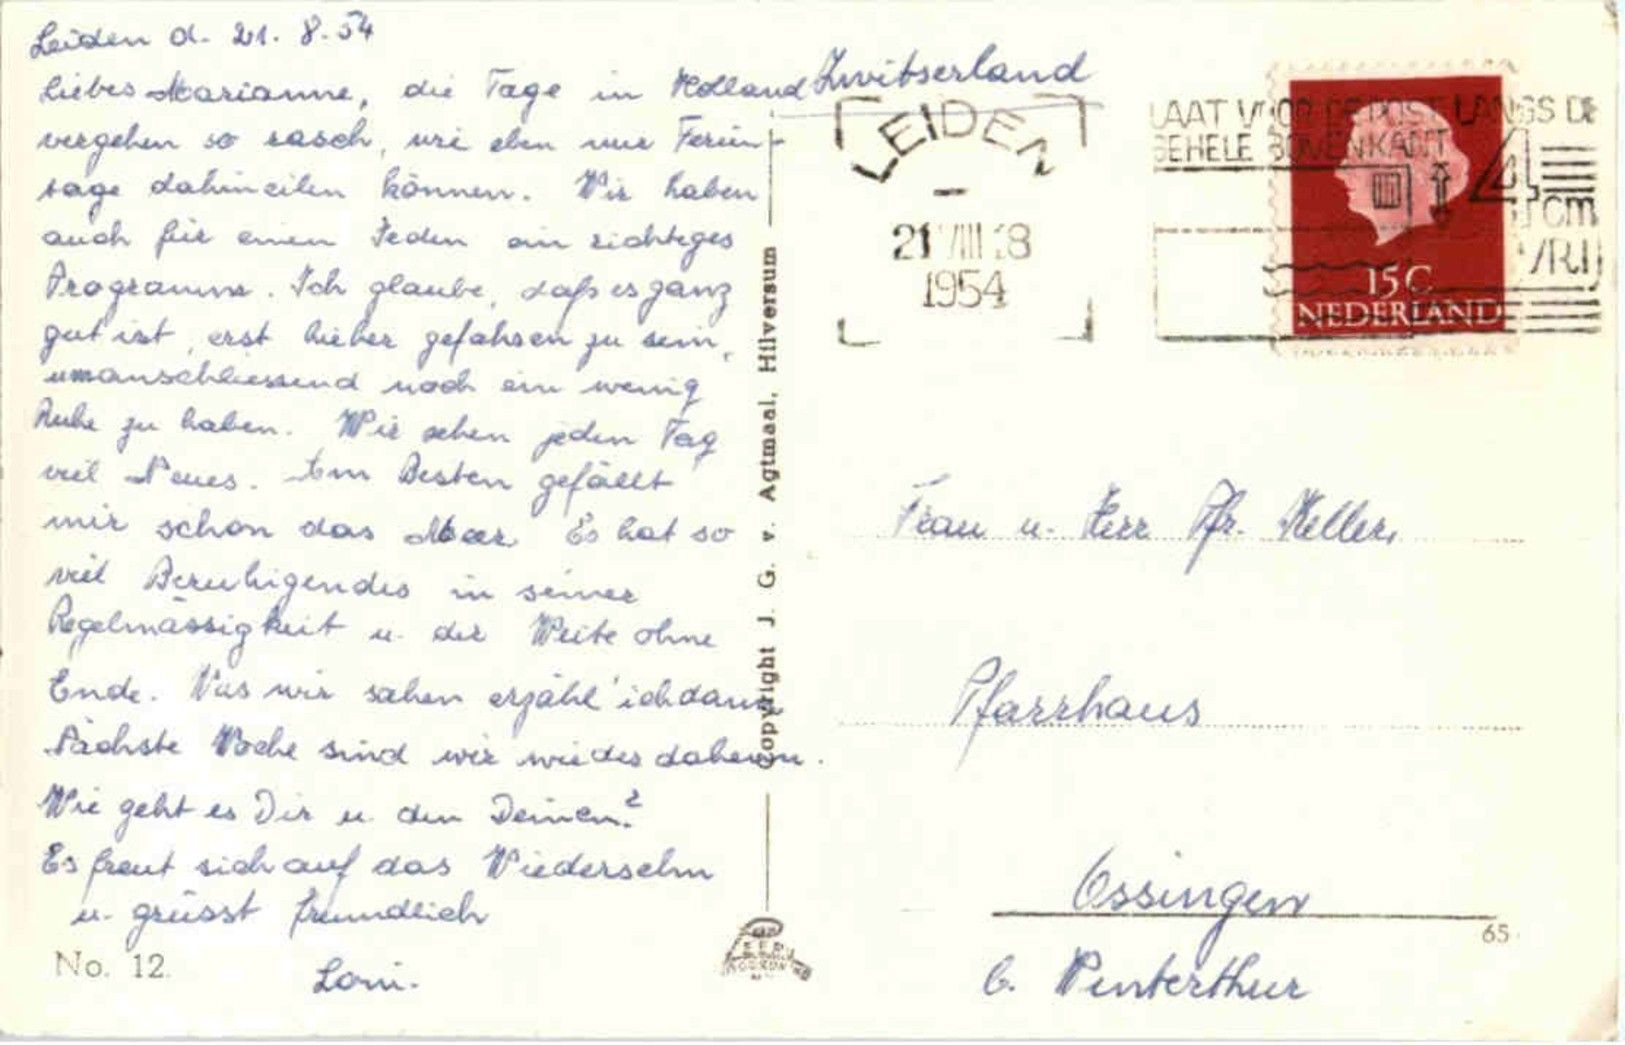 Leiden d. 21. 8. 54
Liebes Marianne, die Tage in Holland
vergehen so rasch, wie eben nur Ferien-
tage dahineilen können. Wir haben
auch für einen Jeden ein richtiges
Programm. Ich glaube, dass es ganz
gut ist, erst hieher gefahren zu sein,
um anschliessend noch ein wenig
Ruhe zu haben. Wir sehen jeden Tag
viel Neues. Am Besten gefällt
mir schon das Meer. Es hat so
viel Beruhigendes in seiner
Regelmässigkeit u. der Weite ohne
Ende. Was wir sahen erzähl' ich dann.
Nächste Woche sind wir wieder daheim.
Wie geht es Dir u. den Deinen?
Es freut sich auf das Wiedersehn
u. grüsst freundlich
Loni.
No. 12
Copyright J. G. v. Agtmaal, Hilversum
Zwitserland
LEIDEN
21 VIII 18
1954
LAAT VOOR DE POST LANGS DE
GEHELE BOVENKANT 4
cm
VRIJ
15 C
NEDERLAND
Frau u. Herr Pfr. Keller,
Pfarrhaus
Ossingen
65
b. Winterthur